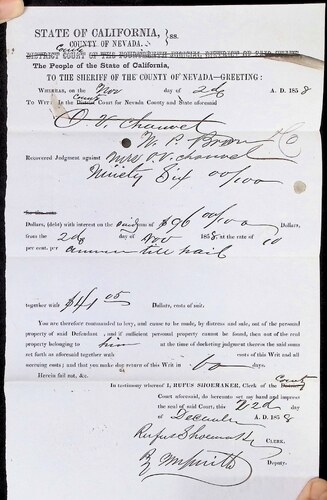 STATE OF CALIFORNIA, } SS.
COUNTY OF NEVADA.
County
DISTRICT COURT OF THE FOURTEENTH JUDICIAL DISTRICT OF SAID STATE
The People of the State of California,
TO THE SHERIFF OF THE COUNTY OF NEVADA—GREETING:
WHEREAS, on the Nov day of 2d A. D. 1858
County
To Wit: In the District Court for Nevada County and State aforesaid
O. V. Chauvet
W. P.
Recovered Judgment against Mrs O. V. Chauvet
Ninety Six 00/100
Dollars, (debt) with interest on the sum of $96 00/100 Dollars,
from the 2d day of Nov 1858, at the rate of 10
per cent. per annum till paid
together with $41 05 Dollars, costs of suit.
You are therefore commanded to levy, and cause to be made, by distress and sale, out of the personal
property of said Defendant , and if sufficient personal property cannot be found, then out of the real
property belonging to him at the time of docketing judgment therein the said sums
set forth as aforesaid together with costs of this Writ and all
accruing costs; and that you make due return of this Writ in 60 days.
Herein fail not, &c.
In testimony whereof I, RUFUS SHOEMAKER, Clerk of the District County
Court aforesaid, do hereunto set my hand and impress
the seal of said Court, this 22d day
of December A. D. 1858
Rufus Shoemaker CLERK.
By Wm Smith Deputy.